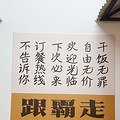 干饭无罪
自由无价
欢迎光临
下次必来
订餐热线
不告诉你
跟霸走